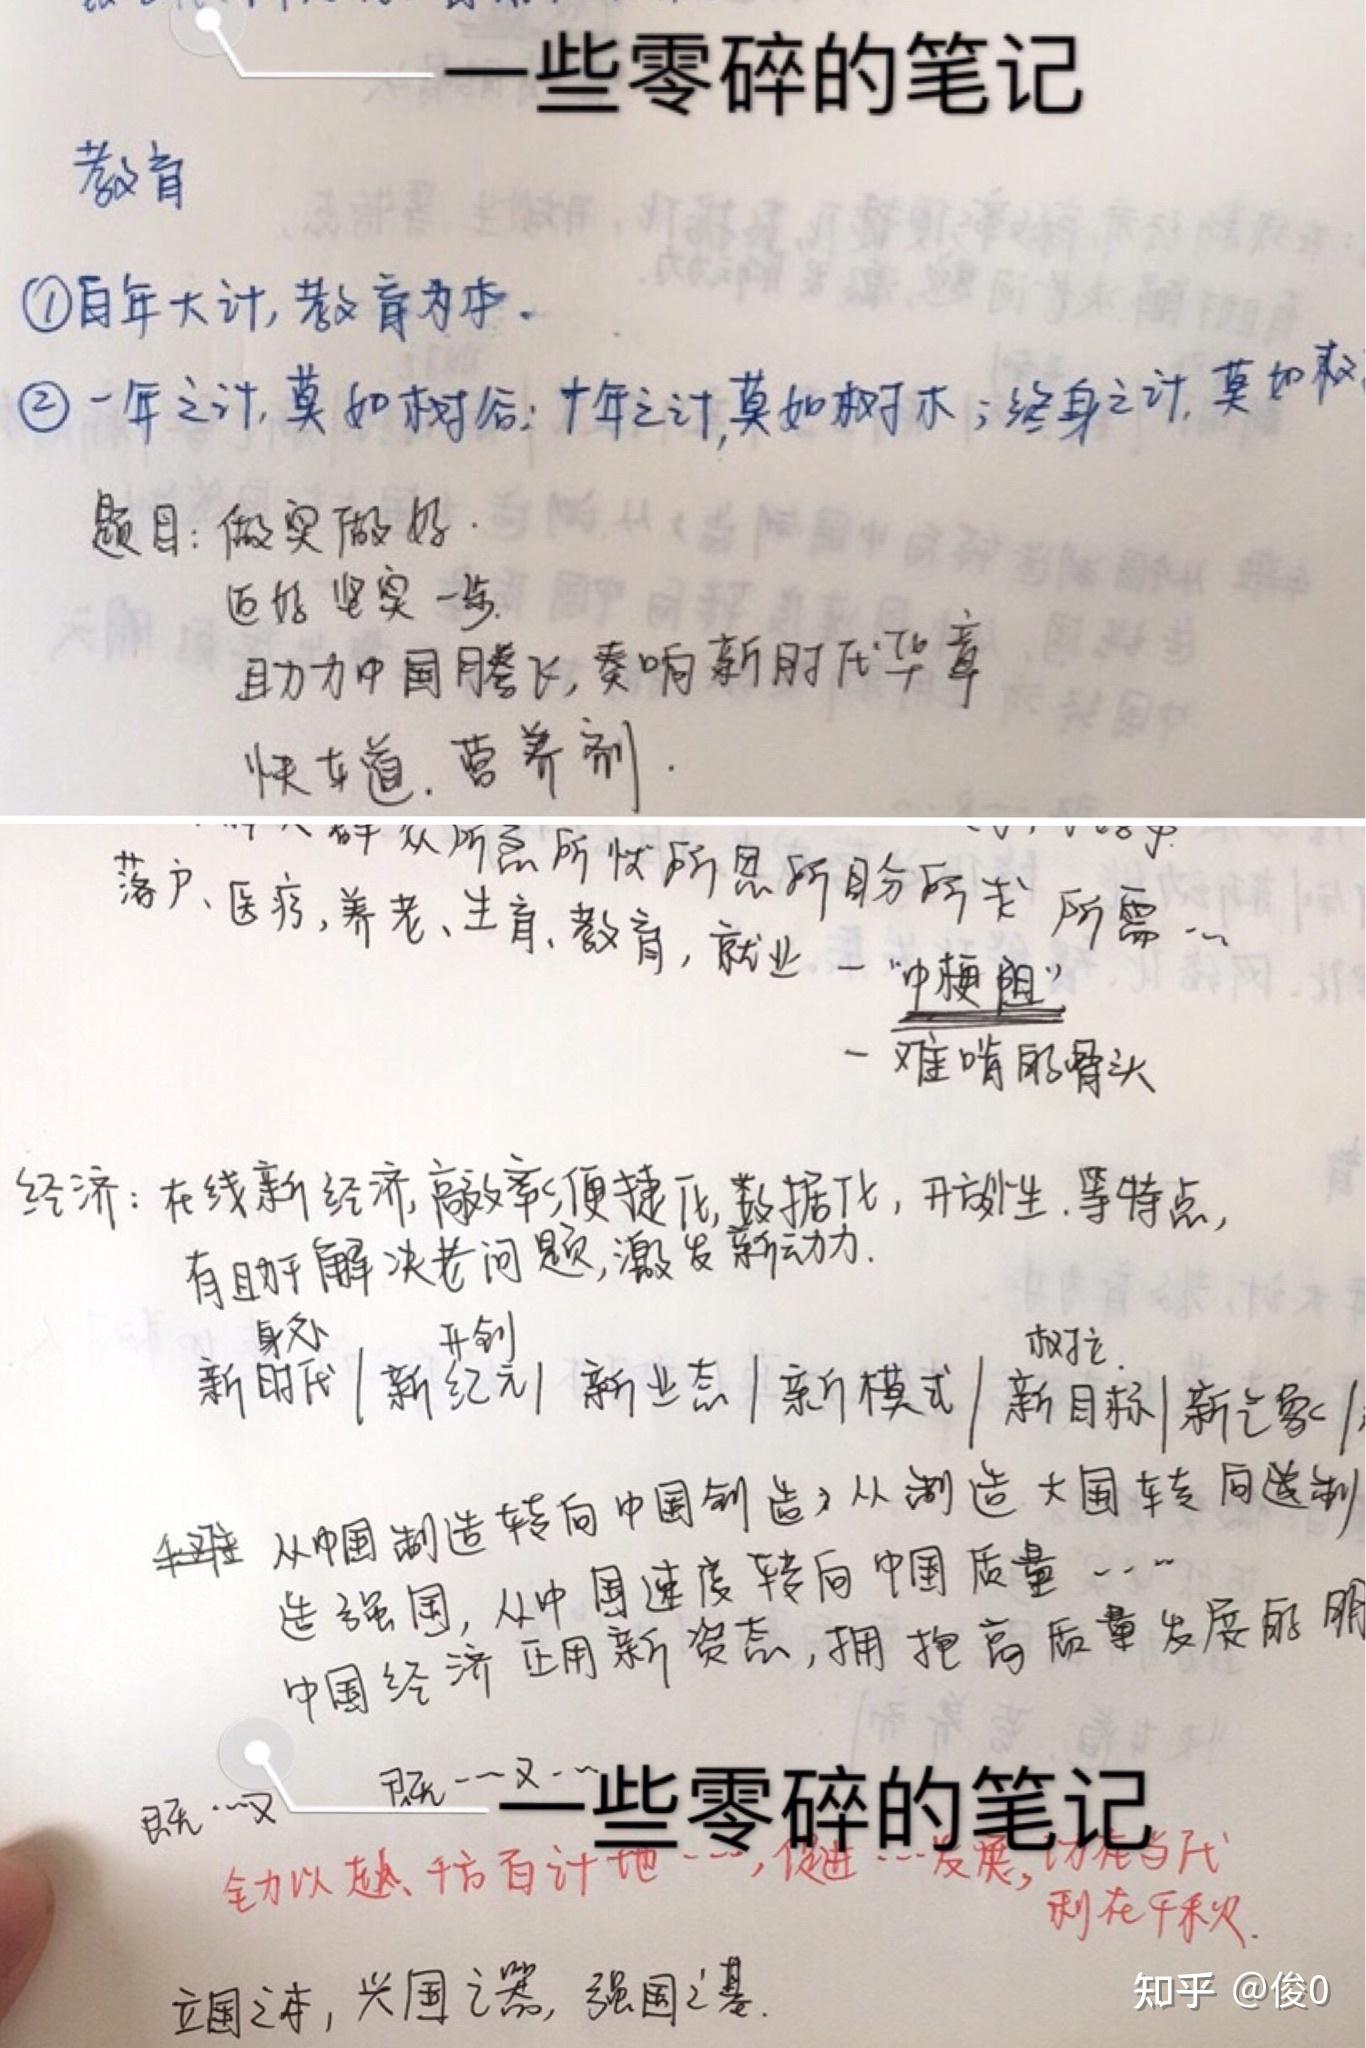 一些零碎的笔记
教育
①百年大计,教育为本.
②一年之计,莫如树谷;十年之计,莫如树木;终身之计,莫如
题目:做实做好.
迈好坚实一步.
助力中国腾飞,奏响新时代华章
快车道.营养剂.
群众所急所忧所思所盼所求所需……
落户、医疗,养老、生育、教育,就业 一"中梗阻"
一难啃的骨头
经济:在线新经济,高效率,便捷化,数据化,开放性.等特点,
有助于解决老问题,激发新动力.
身处 开创 树立.
新时代|新纪元|新业态|新模式|新目标|新气象|
从中国制造转向中国创造,从制造大国转向制
造强国,从中国速度转向中国质量……
中国经济正用新姿态,拥抱高质量发展的
既……又 既……又……
一些零碎的笔记
全力以赴、千方百计地……,促进……发展,功在当代
利在千秋.
立国之本,兴国之器,强国之基.
知乎 @俊0